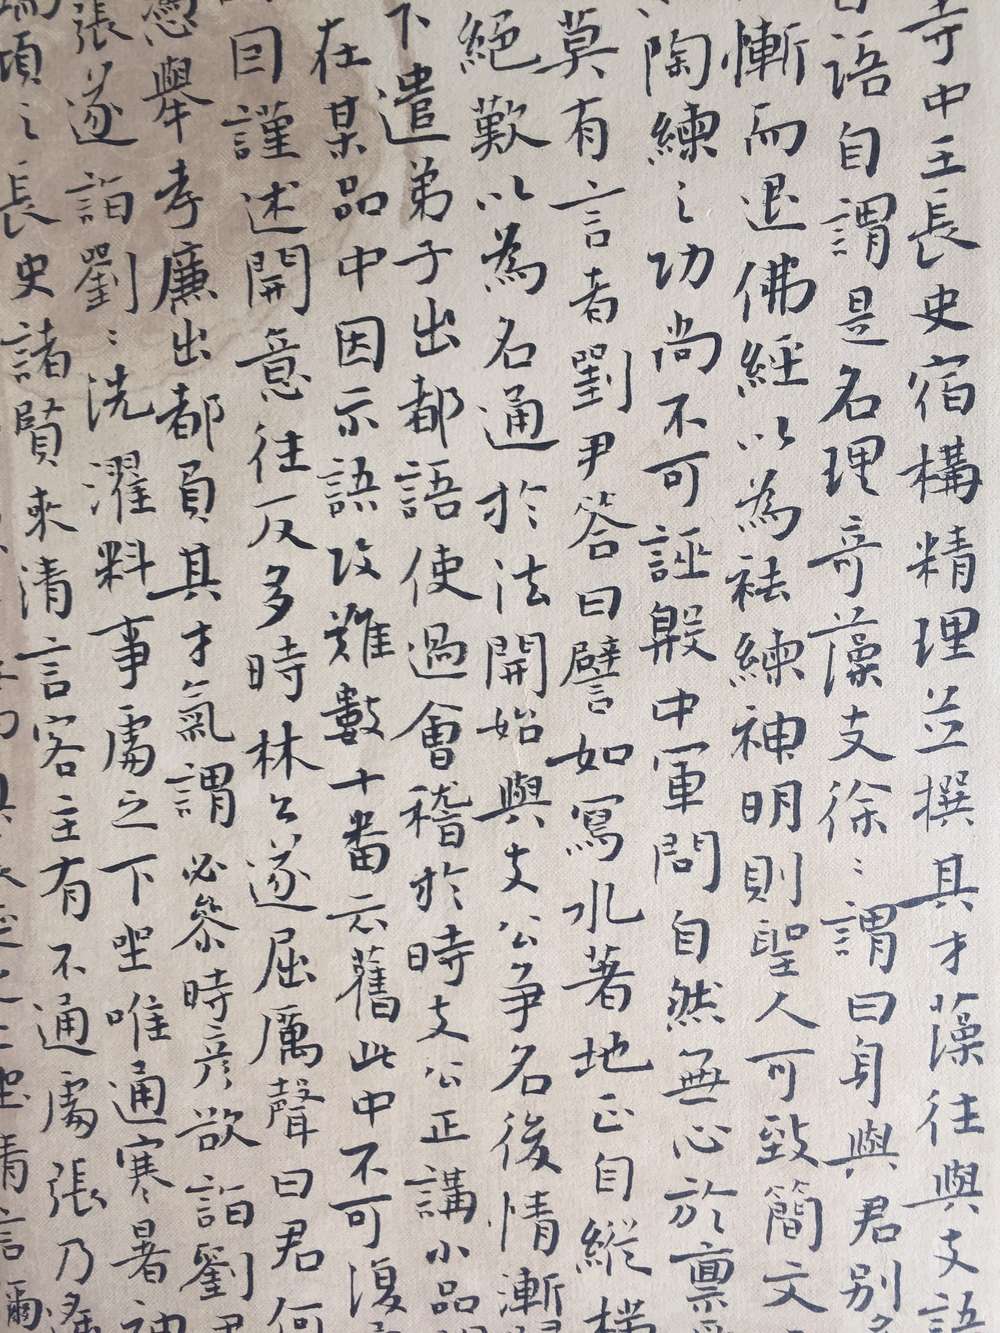 寺中王長史宿構精理並撰其才藻往與支語
語自謂是名理奇藻支徐〻謂曰身與君別
慚而退佛經以為祛練神明則聖人可致簡文
陶練之功尚不可誣殷中軍問自然無心於稟受
莫有言者劉尹答曰譬如寫水著地正自縱橫
絕歎以為名通於法開始與支公爭名後情漸
下遣弟子出都語使過會稽於時支公正講小品
在某品中因示語攻難數十番云舊此中不可復
因謹述開意往反多時林公遂屈厲聲曰君何
憑舉孝廉出都負其才氣謂必參時彥欲詣劉尹
張遂詣劉〻洗濯料事處之下坐唯通寒暑神
頃之長史諸賢來清言客主有不通處張乃遙
清言彌